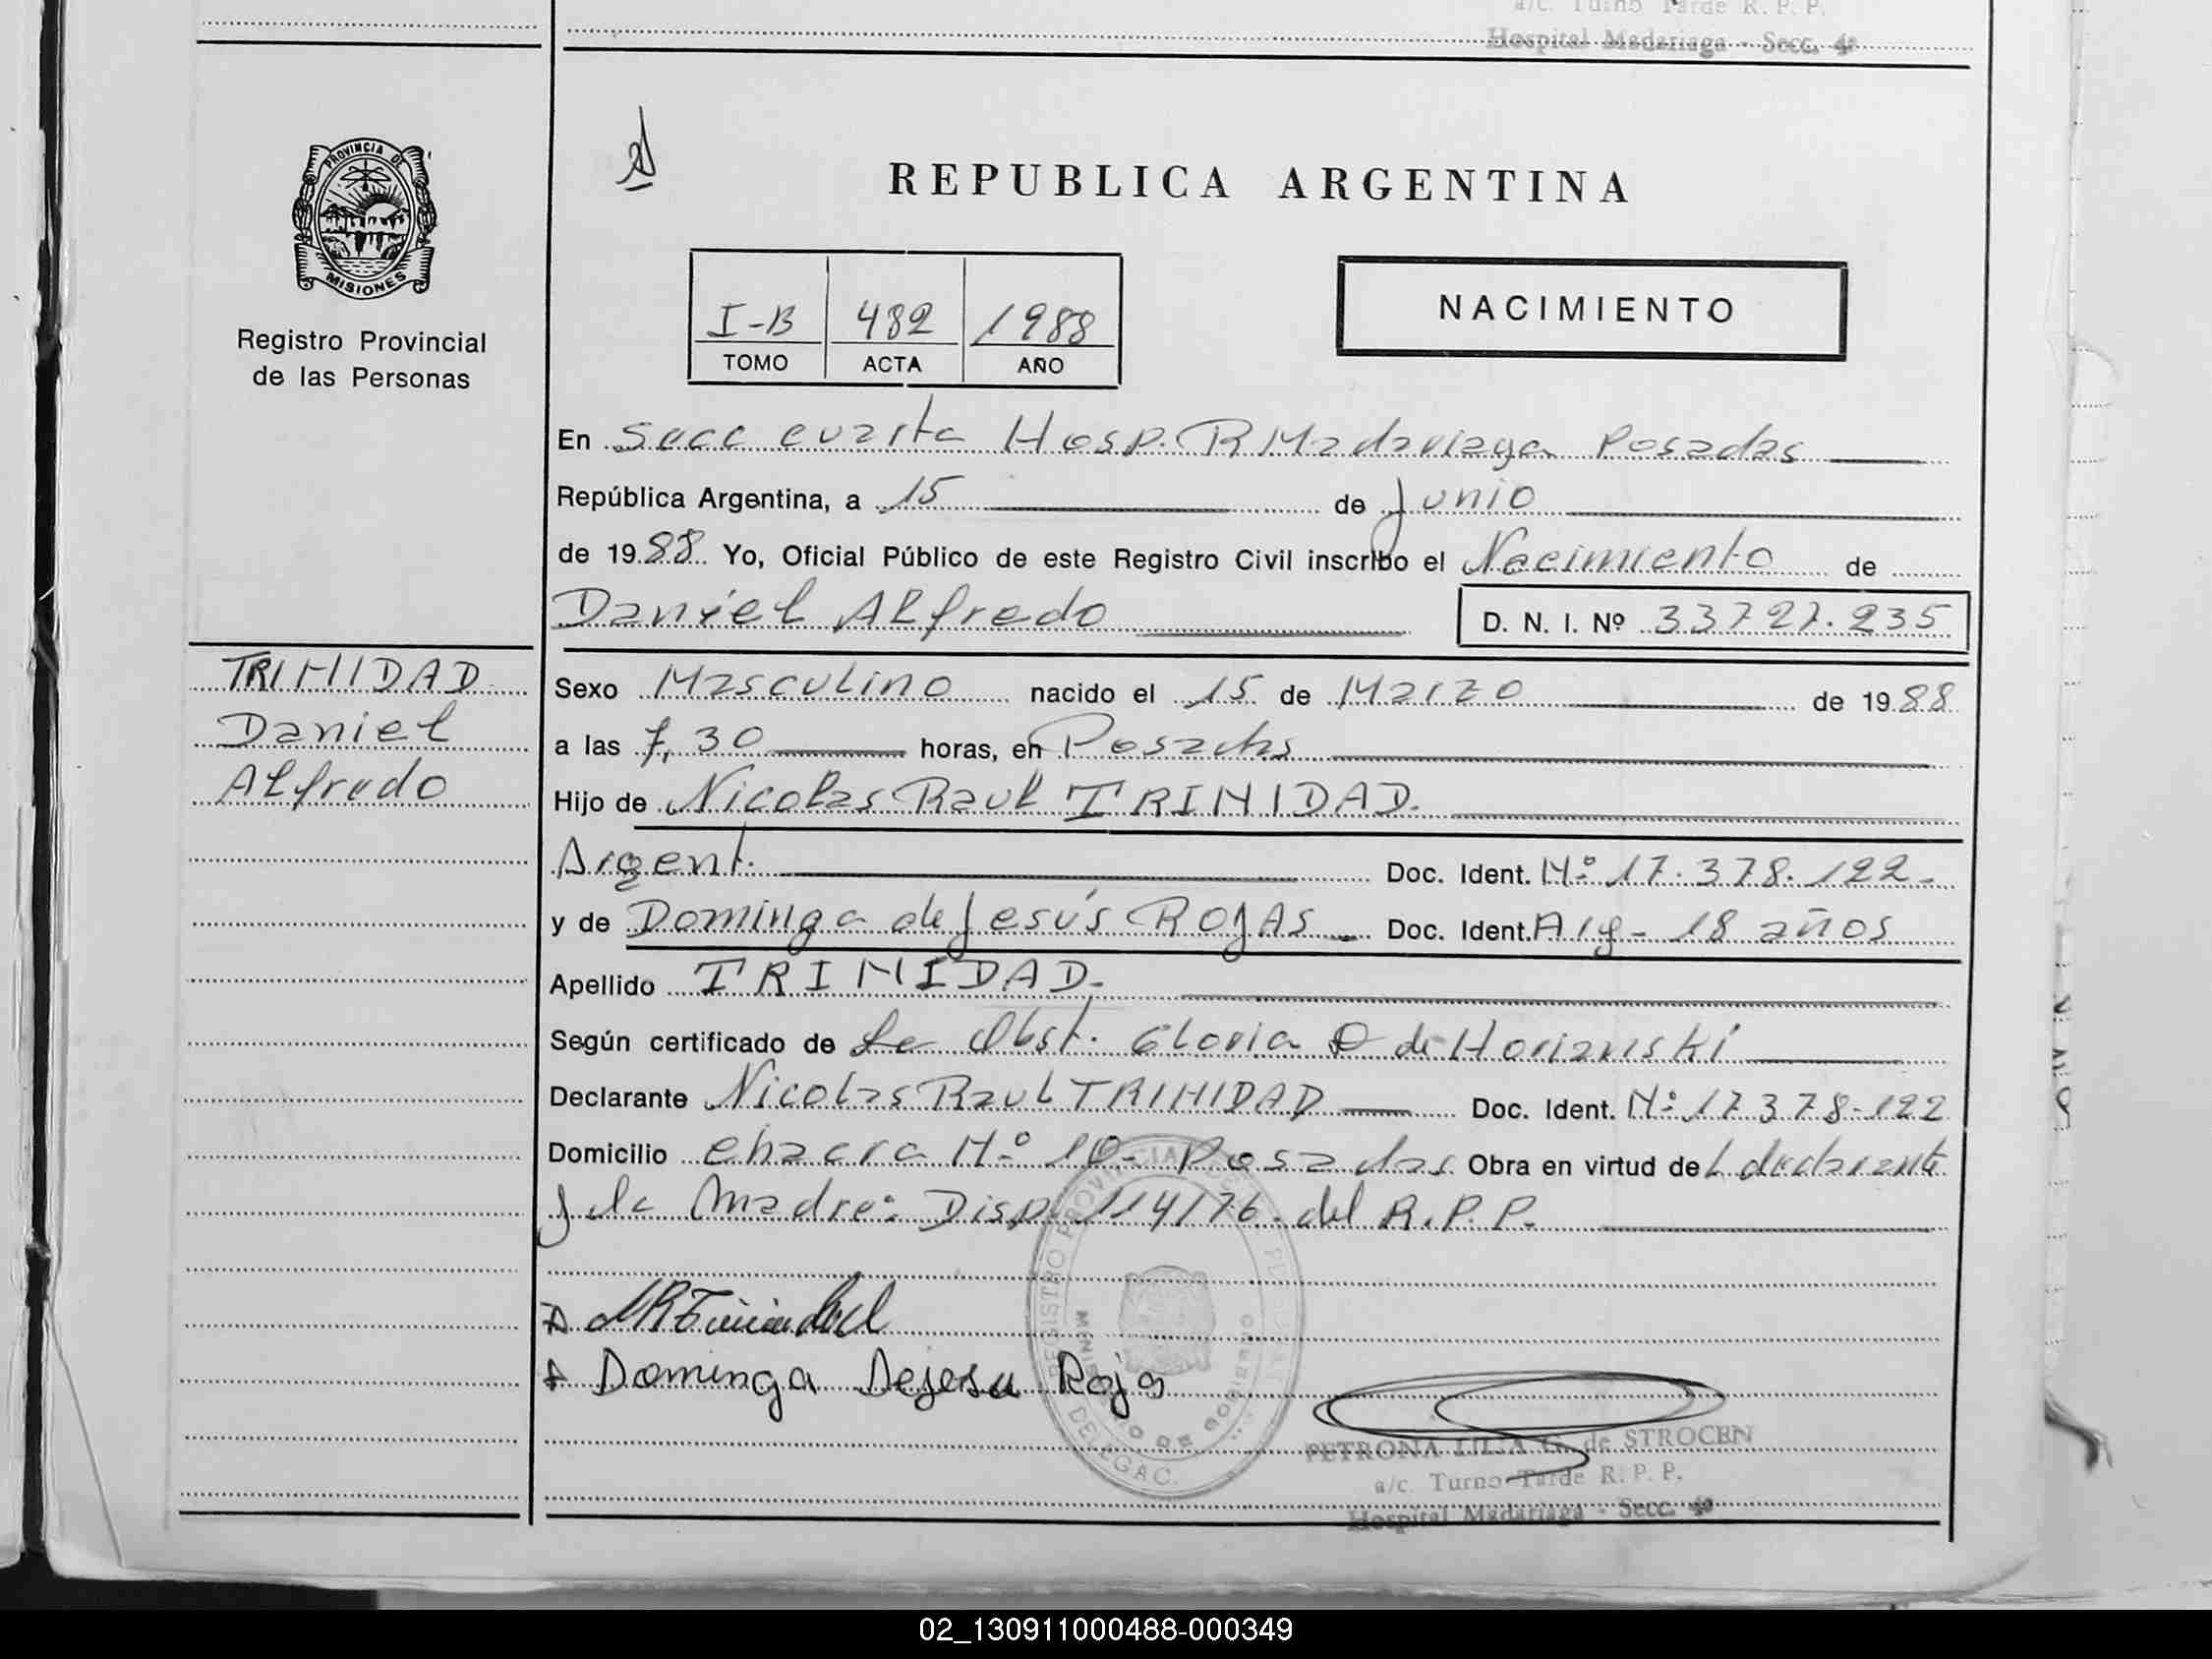 a/c. Turno Tarde R. P. P.
Hospital Madariaga - Secc. 4ª
PROVINCIA DE
MISIONES
Registro Provincial
de las Personas
REPUBLICA ARGENTINA
I-B 482 1988
TOMO ACTA AÑO
NACIMIENTO
En Secc cuarta Hosp. R Madariaga Posadas
República Argentina, a 15 de Junio
de 1988 Yo, Oficial Público de este Registro Civil inscribo el Nacimiento de
Daniel Alfredo D. N. I. Nº 33727.235
TRINIDAD
Daniel
Alfredo
Sexo Masculino nacido el 15 de Marzo de 1988
a las 7,30 horas, en Posadas
Hijo de Nicolas Raul TRINIDAD.
Argent. Doc. Ident. Nº 17.378.122-
y de Dominga de Jesús ROJAS - Doc. Ident. Arg - 18 años
Apellido TRINIDAD-
Según certificado de La Obst. Gloria de
Declarante Nicolas Raul TRINIDAD Doc. Ident. Nº 17378-122
Domicilio chacra Nº 10- Posadas Obra en virtud del declarante
y la Madre: Disp. 114/76. del R.P.P.
NRTrinidad
Dominga Dejesu Rojas
REGISTRO PROVINCIAL DE
MINISTERIO DE GOBIERNO
DELEGAC.
PETRONA LILIA G. de STROCEN
a/c. Turno Tarde R. P. P.
Hospital Madariaga - Secc. 4ª
02_130911000488-000349